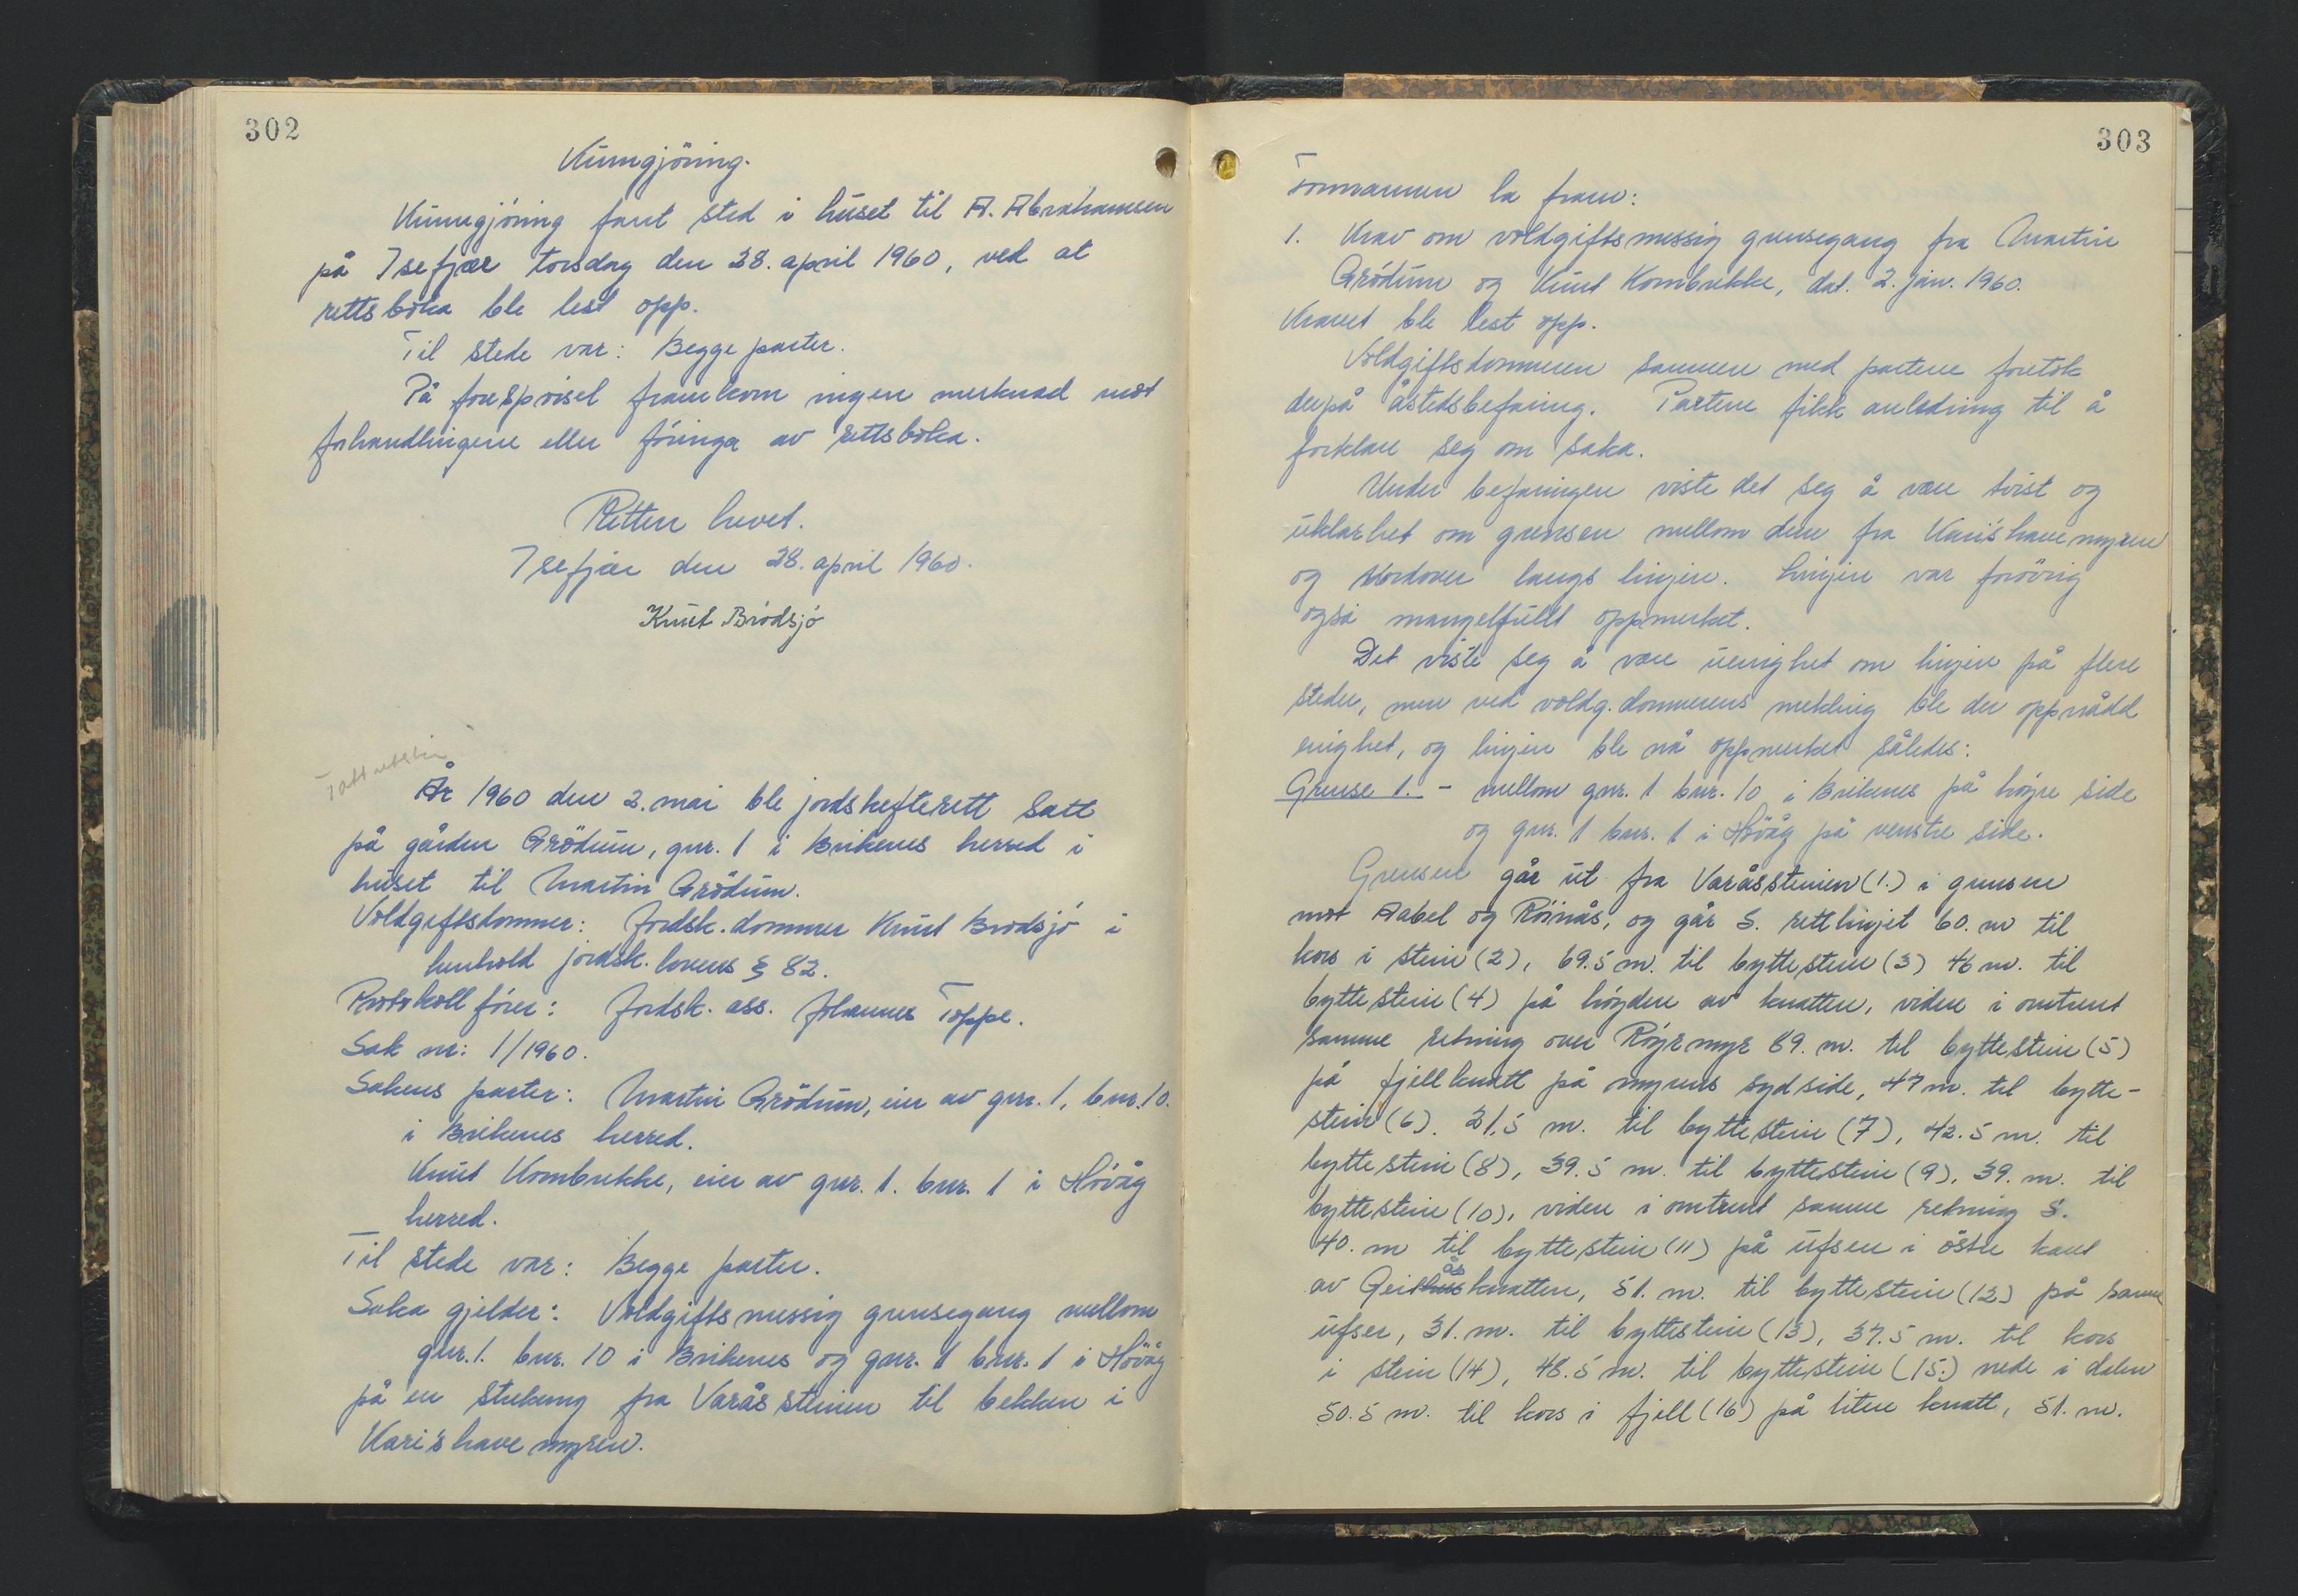 302
Kunngjöring.
Kunngjöring fant sted i huset til A. Abrahamsen
på Isefjær torsdag den 28. april 1960, ved at
rettsboka ble lest opp.
Til stede var: Begge parter.
På forespörsel framkom ingen merknad mot
forhandlingene eller föringa av rettsboka.
Retten hevet.
Isefjær den 28. april 1960.
Knut Brödsjö
Tatt utskr.
År 1960 den 2. mai ble jordskifterett satt
på gården Grödum, gnr. 1 i Birkenes herred i
huset til Martin Grödum.
Voldgiftsdommer: Jordsk. dommer Knut Brödsjö i
henhold jordsk. lovens § 82.
Protokollförer: Jordsk. ass. Johannes Toppe.
Sak nr: 1/1960.
Sakens parter: Martin Grödum, eier av gnr. 1, bnr. 10.
i Birkenes herred.
Knut Kornbrekke, eier av gnr. 1. bnr. 1 i Hövåg
herred.
Til stede var: Begge parter.
Saka gjelder: Voldgiftsmessig grensegang mellom
gnr. 1. bnr. 10 i Birkenes og gnr. 1 bnr. 1 i Hövåg
på en strekning fra Varåssteinen til bekken i
Kari's have myren.
303
Formannen la fram:
1. Krav om voldgiftsmessig grensegang fra Martin
Grödum og Knut Kornbrekke, dat. 2. jan. 1960.
Kravet ble lest opp.
Voldgiftsdommeren sammen med partene foretok
derpå åstedsbefaring. Partene fikk anledning til å
forklare seg om saka.
Under befaringen viste det seg å være tvist og
uklarhet om grensen mellom dem fra Kari's have myren
og nordover langs linjen. Linjen var forövrig
også mangelfullt oppmerket.
Det viste seg å være uenighet om linjen på flere
steder, men ved voldg. dommerens mekling ble der oppnådd
enighet, og linjen ble nå oppmerket således:
Grense 1. - mellom gnr. 1 bnr. 10 i Birkenes på höyre side
og gnr. 1 bnr. 1 i Hövåg på venstre side.
Grensen går ut fra Varåssteinen (1.) i grensen
mot Aabel og Röinås, og går S. rettlinjet 60. m til
kors i stein (2), 69.5 m. til byttestein (3) 46 m. til
byttestein (4) på höyden av knatten, videre i omtrent
samme retning over Röyrmyr 89. m. til byttestein (5)
på fjellknatt på myrens sydside, 47 m. til bytte-
stein (6). 21.5 m. til byttestein (7), 42.5 m. til
byttestein (8), 39.5 m. til byttestein (9), 39. m. til
byttestein (10), videre i omtrent samme retning S.
40. m til byttestein (11) på ufsen i östre kant
av Geitåsknatten, 51. m. til byttestein (12) på samme
ufser, 31. m. til byttestein (13), 37.5 m. til kors
i stein (14), 48.5 m. til byttestein (15.) nede i dalen
50.5 m. til kors i fjell (16) på liten knatt, 51. m.